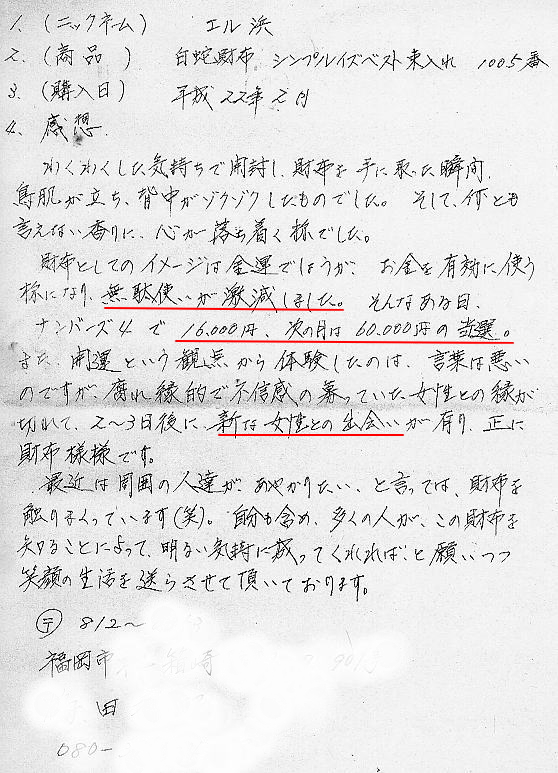 1. (ニックネーム) エル浜
2. (商品) 白蛇財布 シンプルイズベスト束入れ 1005番
3. (購入日) 平成22年2月
4. 感想.
わくわくした気持ちで開封し、財布を手に取った瞬間、
鳥肌が立ち、背中がゾクゾクしたものでした。そして、何とも
言えない香りに、心が落ち着く様でした。
財布としてのイメージは金運でしょうが、お金を有効に使う
様になり、無駄使いが激減しました。そんなある日、
ナンバーズ4で16,000円、次の月は60,000円の当選。
また、開運という観点から体験したのは、言葉は悪い
のですが、腐れ縁的で不信感の募っていた女性との縁が
切れて、2〜3日後に、新な女性との出会いが有り、正に
財布様様です。
最近は周囲の人達が、あやかりたい、と言っては、財布を
触りまくっています(笑)。自分も含め、多くの人が、この財布を
知ることによって、明るい気持に成ってくれれば、と願いつつ
笑顔の生活を送らさせて頂いております。
〒 812〜
福岡市
田
080-